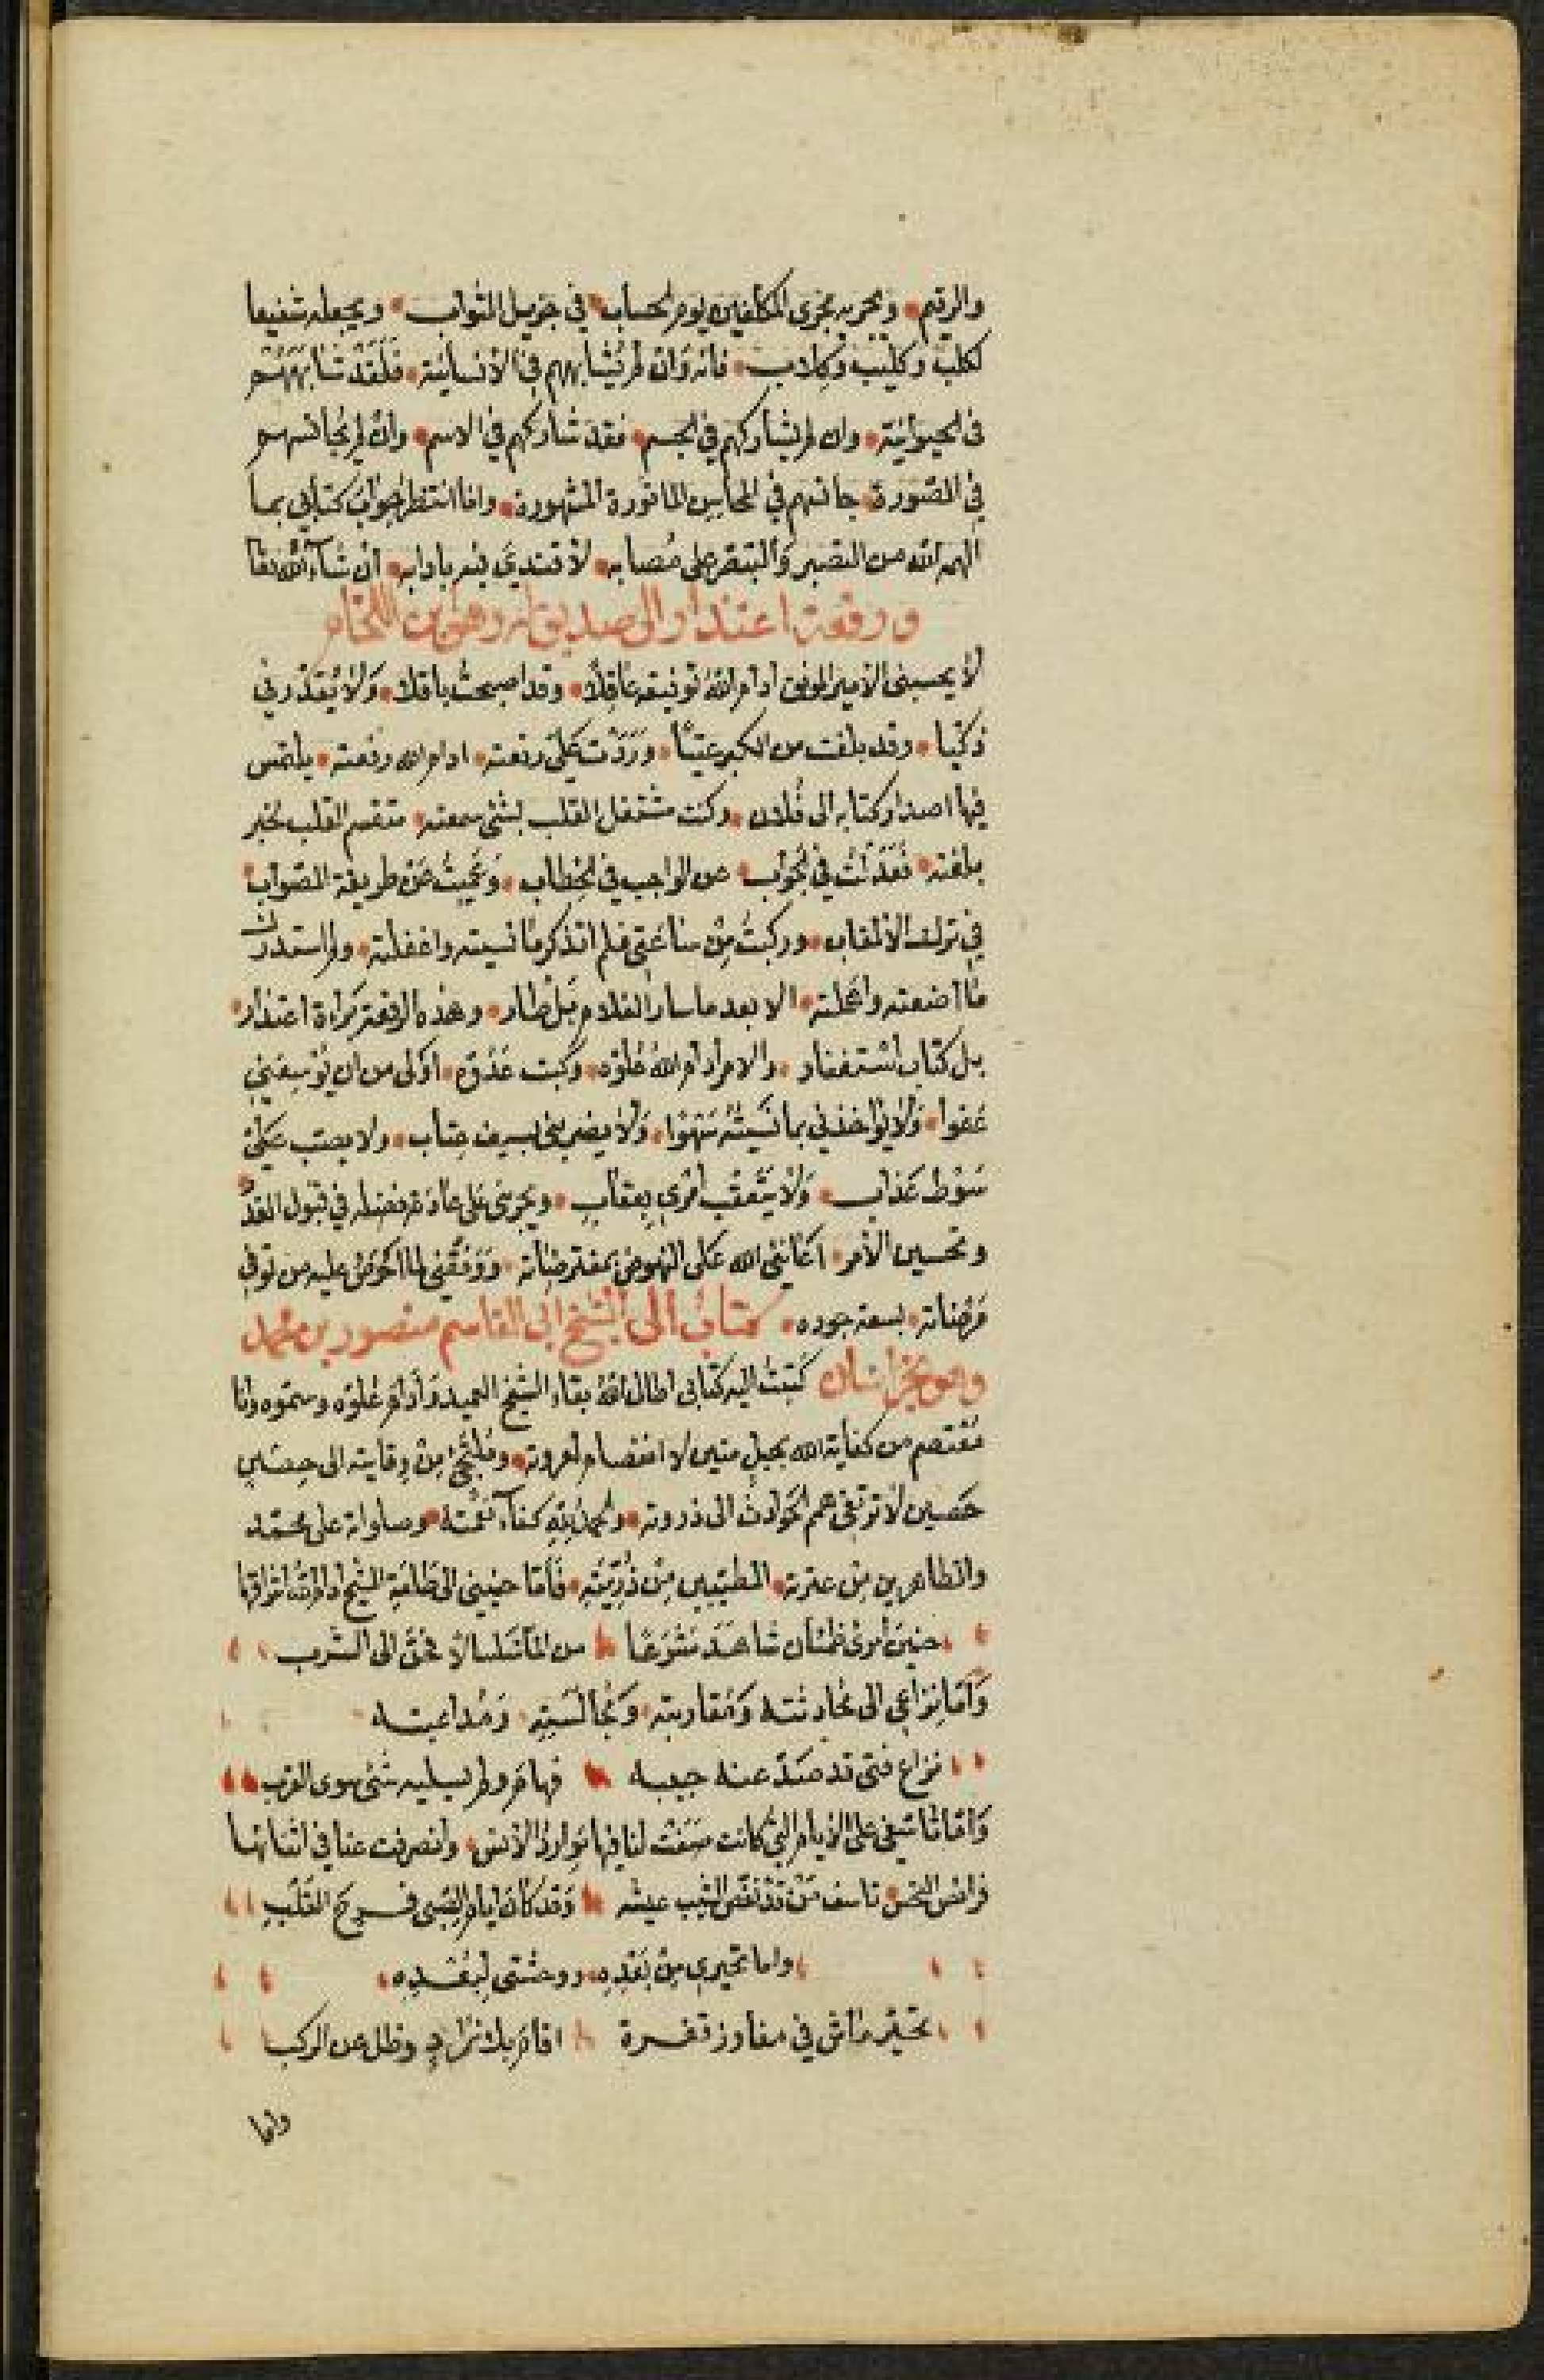 والرقيم • ويجريه مجرى المكلفين يوم الحساب • في جزيل الثواب • ويجعله شفيعا
لكلب وكليب وكلاب • فانه وان لم يشابههم في الانسانية • فلقد شابههم
في الحيوانية • وان لم يشاركهم في الجسم • فقد شاركهم في الاسم • وان لم يجانسهم
في الصورة • جانسهم في المحاسن الماثورة المشهورة • وانا انتظر جواب كتابي بما
الهمه الله من التصبر والتبصر على مصابه • لاقتدي فيه بادابه • ان شاء الله تعا
ورقعة اعتذار الى صديق له وهو من اللحام
لا يحسبني الامير الموفق ادام الله توفيقه عاقلا • وقد اصبحت باقلا • ولا يقدرني
ذكيا • وقد بلغت من الكبر عتيا • وردت علي رقعته • ادام الله رفعته • يلتمس
فيها اصدار كتابه الى فلان • وكنت مشتغل القلب بشئ سمعته • متقسم القلب لخبر
بلغته • فعدلت في الجواب • عن الواجب في الخطاب • وعميت عن طريقة الصواب •
في ترك الالقاب • وركبت من ساعتي فلم اتذكر ما نسيته واغفلته • ولم استدرك
ما اضعته واهملته • الا بعد ما سار الغلام بل طار • وهذه الرقعة براءة اعتذار •
بل كتاب استغفار • والامير ادام الله علوه • وكبت عدوه • اولى من ان يوسعني
عفوا • ولا يؤاخذني بما نسيته سهوا • ولا يضربني بسيف عتاب • ولا يصب علي
سوط عذاب • ولا يتعقب امري بعقاب • ويجريني على عادة فضله في قبول العذر
وتحسين الامر • اعانني الله على النهوض بمفترضاته • ووفقني لما احرص عليه من توفي
مرضاته • بسعة جوده • كتاب الى الشيخ ابي القاسم منصور بن محمد
وهو بخراسان كتبت اليه كتابي اطال الله بقاء الشيخ العميد وادام علوه وسموه وانا
معتصم من كفاية الله بحبل متين لا انفصام لعروته • وملتجئ من وقايته الى حصن
حصين لا ترتقي همم الحوادث الى ذروته • والحمد لله كفاء نعمته • وصلواته على محمد
والطاهرين من عترته • الطيبين من ذريته • فاما حنيني الى طلعة الشيخ ادام الله اشراقها
حنين امرئ ظمئان شاهد مشرعا من الماء سلسالا فحن الى الشرب
واما نزاعي الى محادثته ومقاربته • ومجالسته • ومداعبته
نزاع فتى قد صد عنه حبيبه فهام ولم يسليه شئ سوى القرب
واما تاسفي على الايام التي كانت صفت لنا فيها موارد الانس • وانصرفت عنا في اثنائها
فرائس النحس • تاسف من قد نغص الشيب عيشه وقد كان ايام الصبى فرح القلب
واما تحيري من بعده • ووحشتي لفقده •
تحير ماش في مفاوز قفرة اقام بلا زاد وظل عن الركب
واما